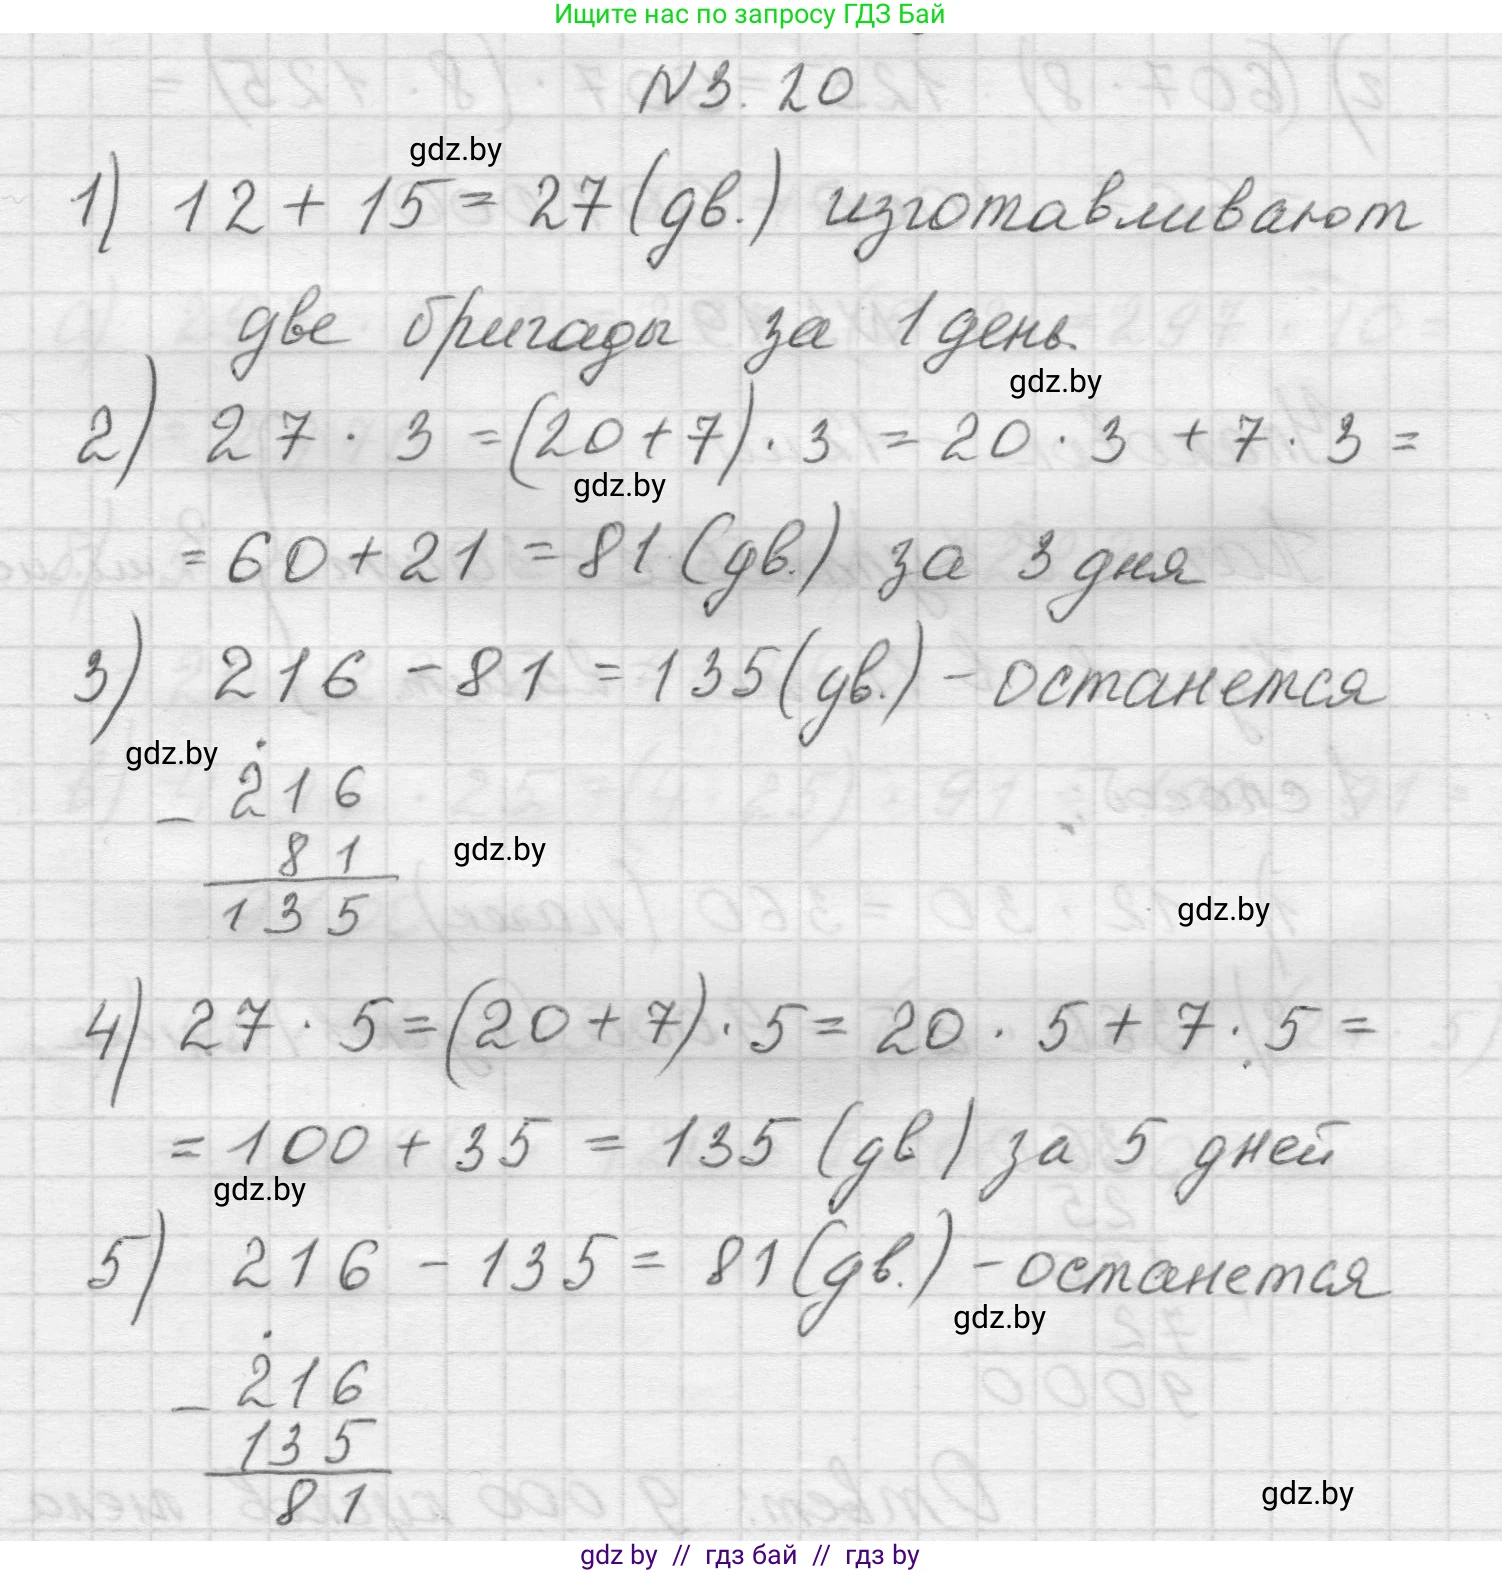 Ищите нас по запросу ГДЗ Бай
N3. 20
gdz.by
1) 12 + 15 = 27 (дв.) изготавливают
две бригады за 1 день.
gdz.by
2) 27 · 3 = (20 + 7) · 3 = 20 · 3 + 7 · 3 =
gdz.by
= 60 + 21 = 81 (дв.) за 3 дня
3) 216 - 81 = 135 (дв.) - останется
gdz.by
- 216
81
gdz.by
135
gdz.by
4) 27 · 5 = (20 + 7) · 5 = 20 · 5 + 7 · 5 =
= 100 + 35 = 135 (дв) за 5 дней
gdz.by
5) 216 - 135 = 81 (дв.) - останется
gdz.by
- 216
135
81
gdz.by
gdz by // гдз бай // гдз by